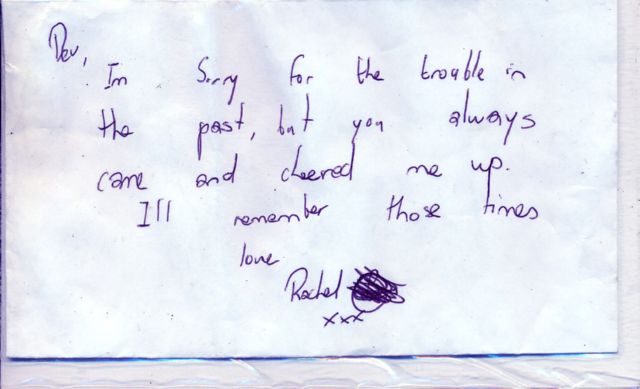 Dev,
Im Sorry for the trouble in
the past, but you always
came and cheered me up.
I'll remember those times
love
Rachel
xxx